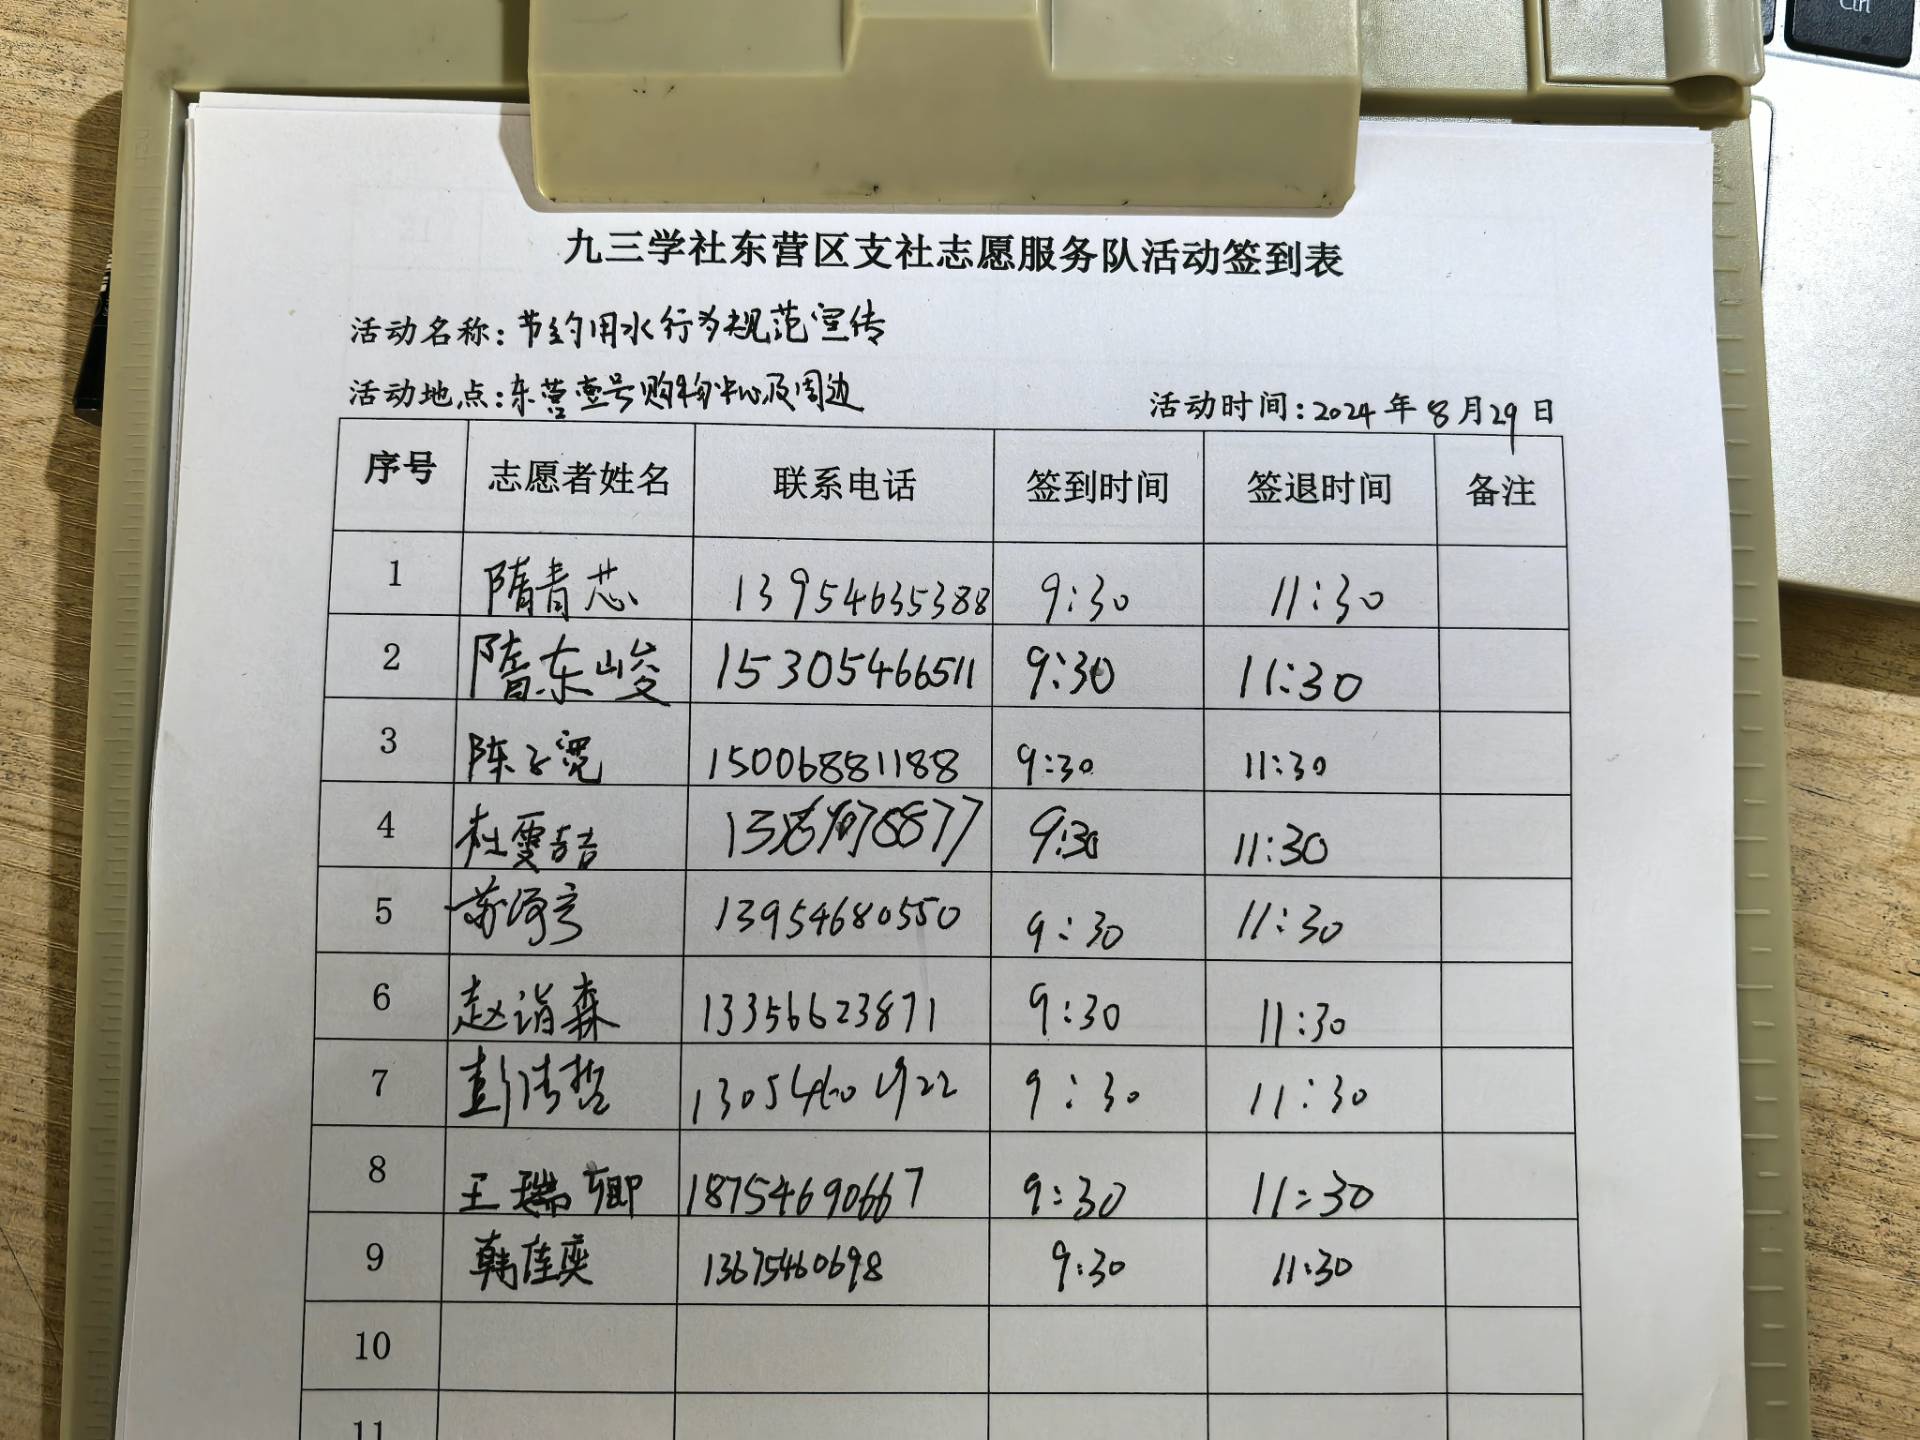 Ctrl
九三学社东营区支社志愿服务队活动签到表
活动名称:节约用水行为规范宣传
活动地点:东营壹号购物中心及周边 活动时间:2024年8月29日
序号 志愿者姓名 联系电话 签到时间 签退时间 备注
1 隋青芯 13954635388 9:30 11:30
2 隋东峻 15305466511 9:30 11:30
3 陈子宽 15006881188 9:30 11:30
4 杜雯喆 9:30 11:30
5 13954680550 9:30 11:30
6 赵诣森 13356623871 9:30 11:30
7 彭 哲 9:30 11:30
8 王瑞卿 18754690667 9:30 11:30
9 韩佳奕 13675460698 9:30 11:30
10
11